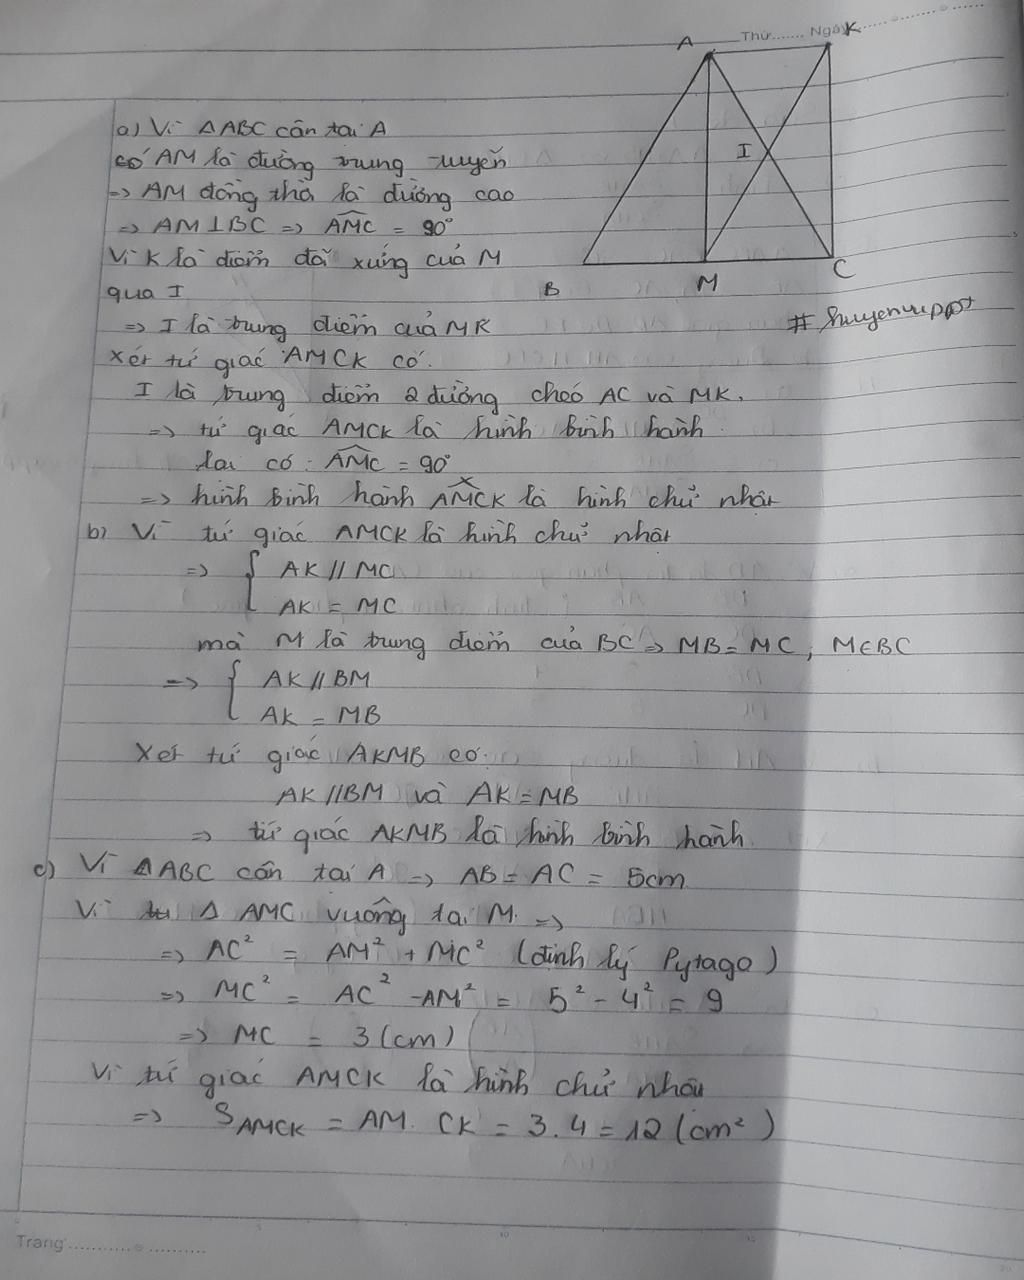 Thứ....... Ngày
A
K
I
B
M
C
#huyenvuppt
a) Vì ΔABC cân tại A
có AM là đường trung tuyến
=> AM đồng thời là đường cao
=> AM⊥BC => AMC = 90°
Vì K là điểm đối xứng của M
qua I
=> I là trung điểm của MK
Xét tứ giác AMCK có:
I là trung điểm 2 đường chéo AC và MK.
=> tứ giác AMCK là hình bình hành
lại có: AMC = 90°
=> hình bình hành AMCK là hình chữ nhật
b) Vì tứ giác AMCK là hình chữ nhật
=> { AK // MC
AK = MC
mà M là trung điểm của BC => MB = MC, M∈BC
=> { AK // BM
AK = MB
Xét tứ giác AKMB có:
AK // BM và AK = MB
=> tứ giác AKMB là hình bình hành
c) Vì ΔABC cân tại A => AB = AC = 5cm
Vì Δ AMC vuông tại M. =>
=> AC² = AM² + MC² (định lý Pytago)
=> MC² = AC² - AM² = 5² - 4² = 9
=> MC = 3 (cm)
Vì tứ giác AMCK là hình chữ nhật
=> S_AMCK = AM. CK = 3.4 = 12 (cm²)
Trang